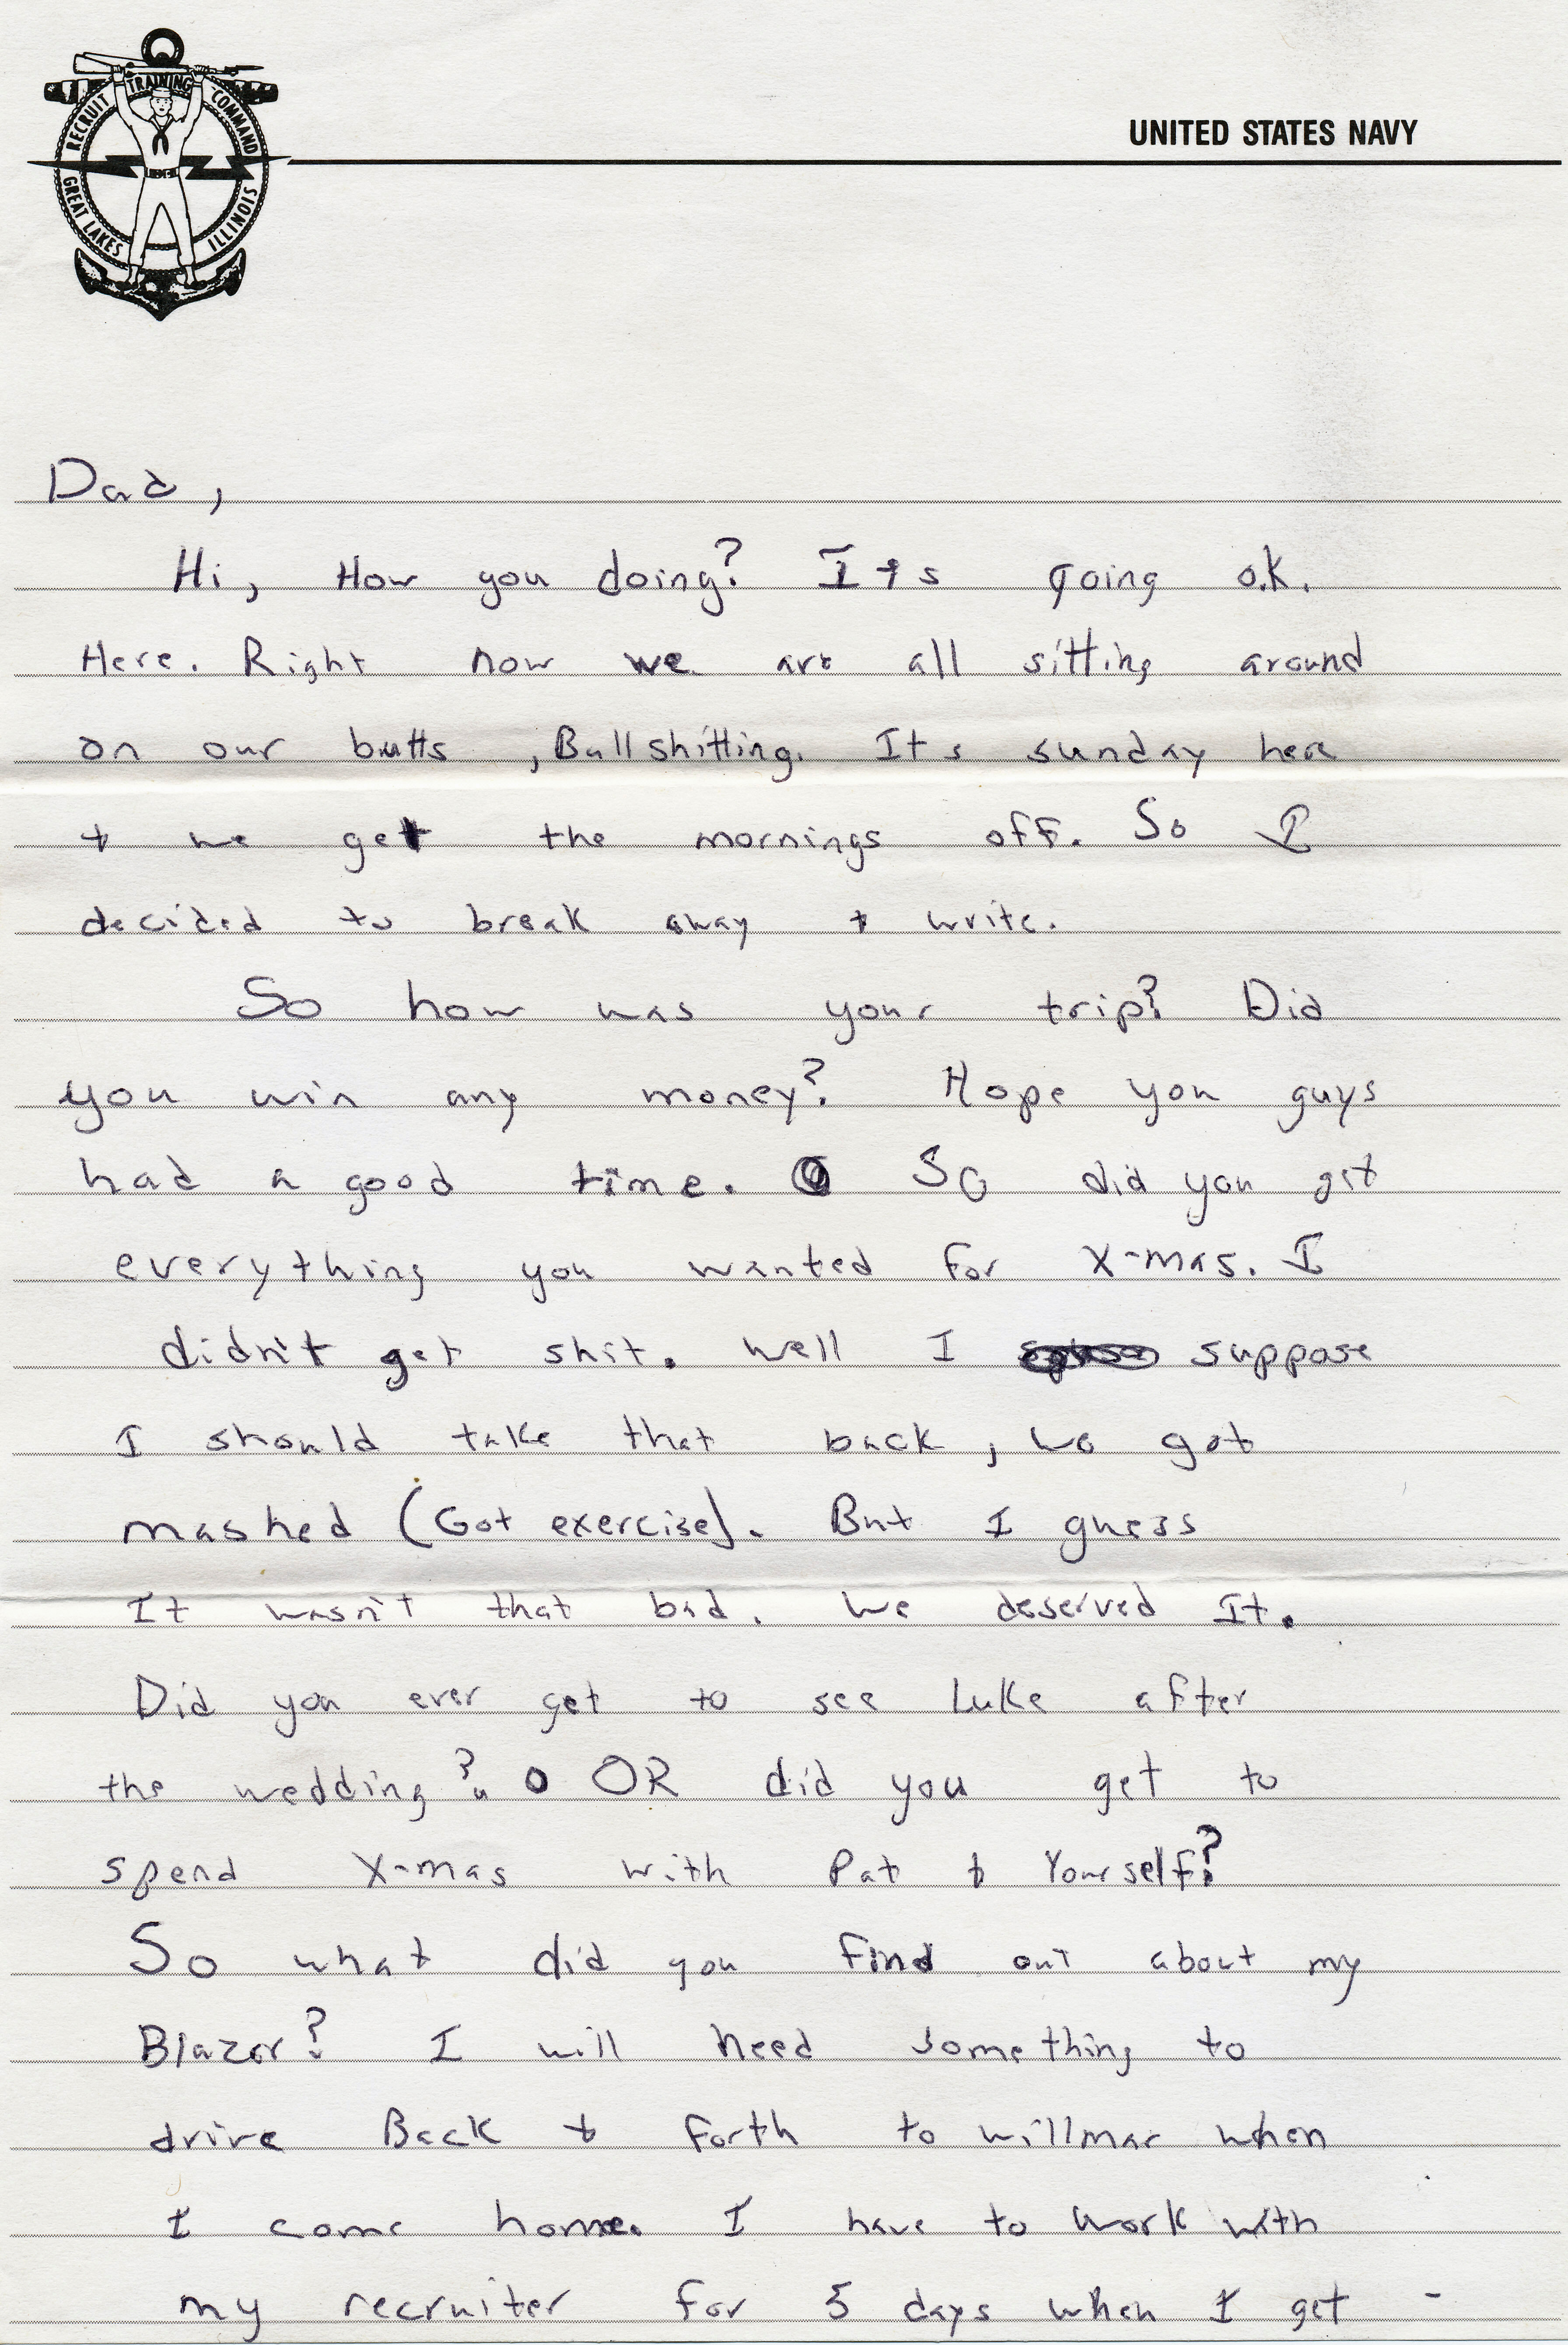 RECRUIT TRAINING COMMAND
GREAT LAKES ILLINOIS
UNITED STATES NAVY
Dad,
Hi, How you doing? Its going o.k.
Here. Right now we are all sitting around
on our butts , Bullshitting. Its sunday here
+ we get the mornings off. So I
decided to break away + write.
So how was your trip? Did
you win any money? Hope you guys
had a good time. So did you get
everything you wanted for X-mas. I
didn't get shit. Well I suppose
I should take that back, we got
mashed (Got exercise). But I guess
It wasn't that bad. We deserved It.
Did you ever get to see Luke after
the wedding? OR did you get to
spend X-mas with Pat + Yourself?
So what did you find out about my
Blazer? I will need something to
drive Back + forth to willmar when
I come home. I have to work with
my recruiter for 5 days when I get -